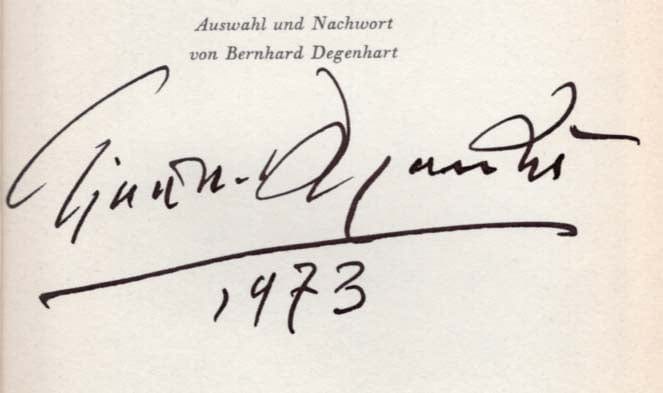 Auswahl und Nachwort
von Bernhard Degenhart
1973